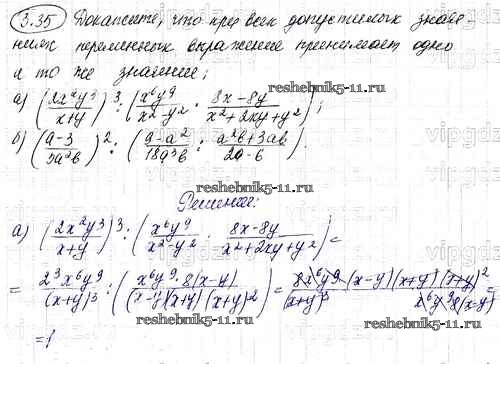 3.35 Докажите, что при всех допустимых значе-
ниях переменных выражение принимает одно
и то же значение;
а) (2x²y³/(x+y))³ : (x⁶y⁹/(x²-y²) · (8x-8y)/(x²+2xy+y²));
б) ((a-3)/(3a²b))² : ((9-a²)/(18a³b) · (a²b+3ab)/(2a-6)).
reshebnik5-11.ru
Решение:
а) (2x²y³/(x+y))³ : (x⁶y⁹/(x²-y²) · (8x-8y)/(x²+2xy+y²)) =
= 2³x⁶y⁹/(x+y)³ : (x⁶y⁹·8(x-y)/((x-y)(x+y)(x+y)²)) = 8x⁶y⁹·(x-y)(x+y)(x+y)²/((x+y)³ x⁶y⁹8(x-y)) =
= 1
reshebnik5-11.ru
vipgdz